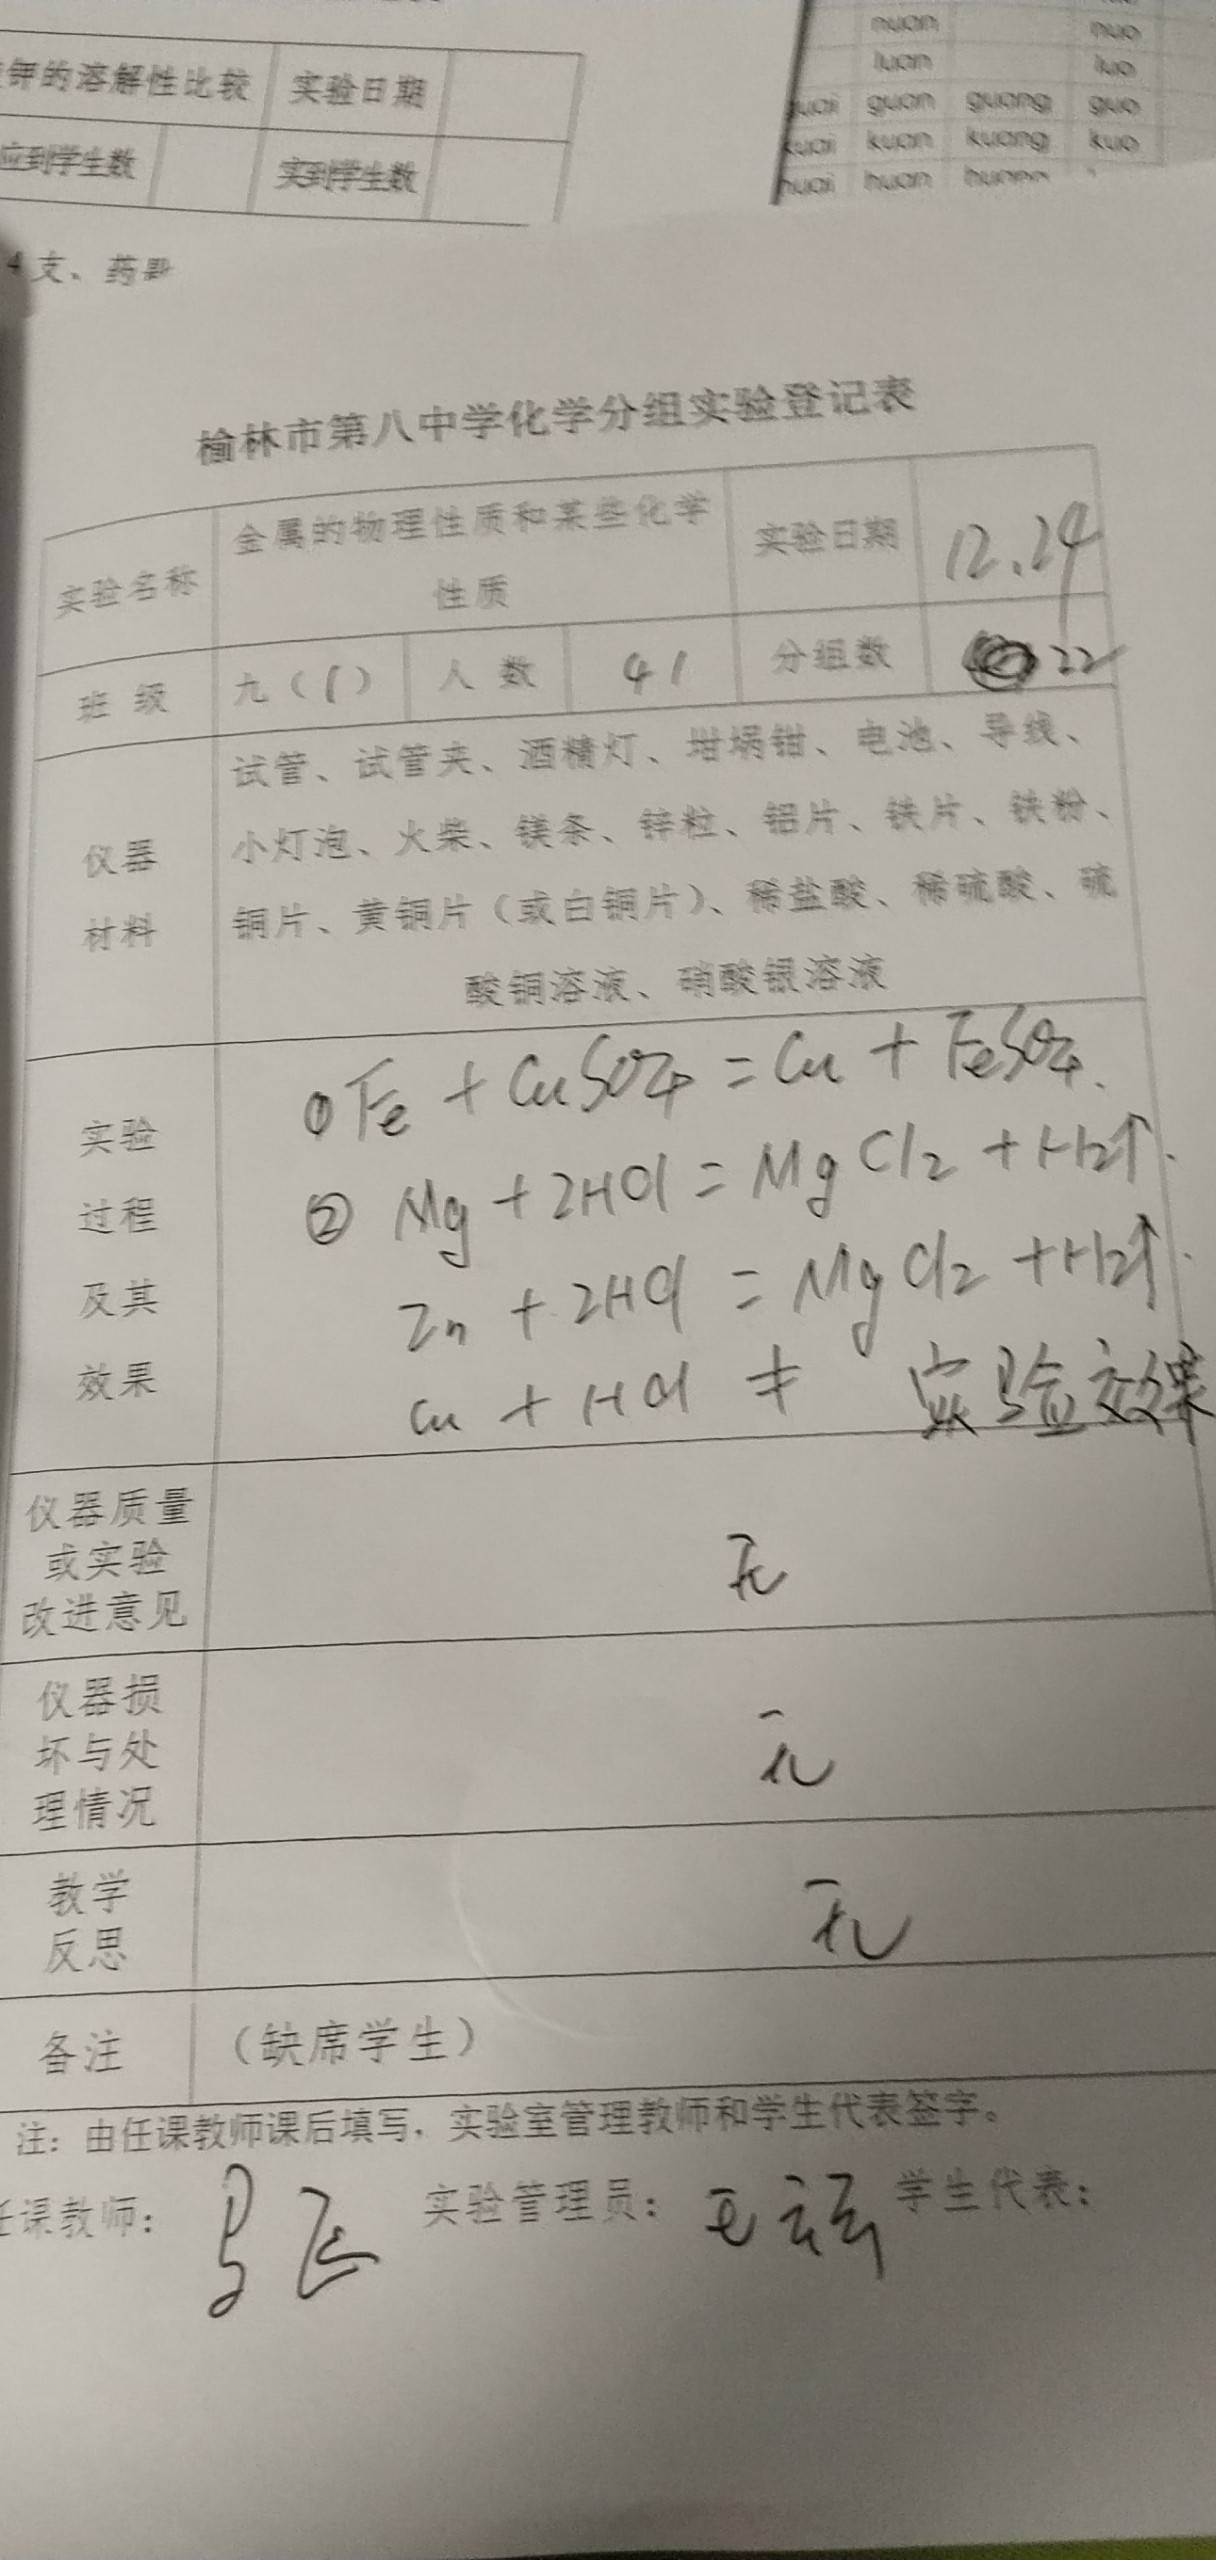 钾的溶解性比较 实验日期
应到学生数 实到学生数
支、药匙
nuan nuo
luan luo
guai guan guang guo
kuai kuan kuang kuo
huai huan
榆林市第八中学化学分组实验登记表
实验名称 金属的物理性质和某些化学性质 实验日期 12.24
班 级 九（1） 人 数 41 分组数 22
仪器材料
试管、试管夹、酒精灯、坩埚钳、电池、导线、
小灯泡、火柴、镁条、锌粒、铝片、铁片、铁粉、
铜片、黄铜片（或白铜片）、稀盐酸、稀硫酸、硫
酸铜溶液、硝酸银溶液
实验过程及其效果
①Fe + CuSO4 = Cu + FeSO4.
② Mg + 2HCl = MgCl2 + H2↑.
Zn + 2HCl = MgCl2 + H2↑.
Cu + HCl ≠ 实验效果
仪器质量或实验改进意见 无
仪器损坏与处理情况 无
教学反思 无
备注 （缺席学生）
注：由任课教师课后填写，实验室管理教师和学生代表签字。
任课教师： 实验管理员： 学生代表：